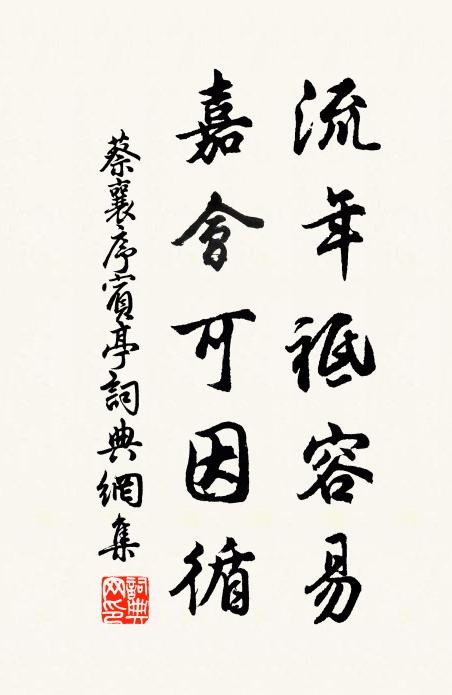 流年祗容易
嘉會可因循
蔡襄序賓亭詞典網集
詞典网印